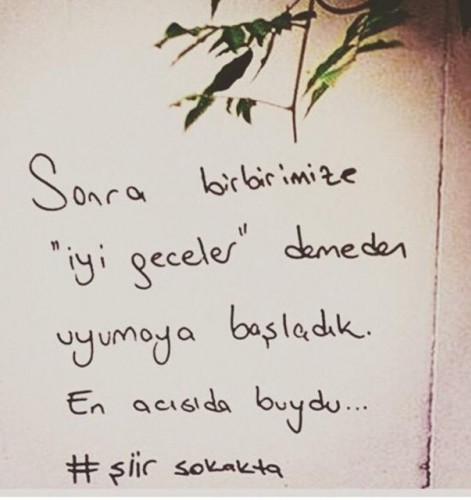 Sonra birbirimize
"iyi geceler" demeden
uyumaya başladık.
En acısıda buydu...
# şiir sokakta